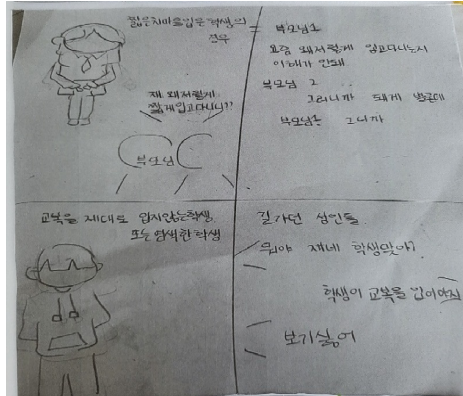 짧은치마를입은 학생의
경우
쟤 왜저렇게
짧게입고다니니??
부모님
부모님1
요즘 왜저렇게 입고다니는지
이해가 안돼
부모님 2
그러니까 되게 별론데
부모님1 그니까
교복을 제대로 입지않는학생
또는 염색한 학생
길가던 성인들
뭐야 쟤네 학생맞아?
학생이 교복을 입어야지
보기싫어